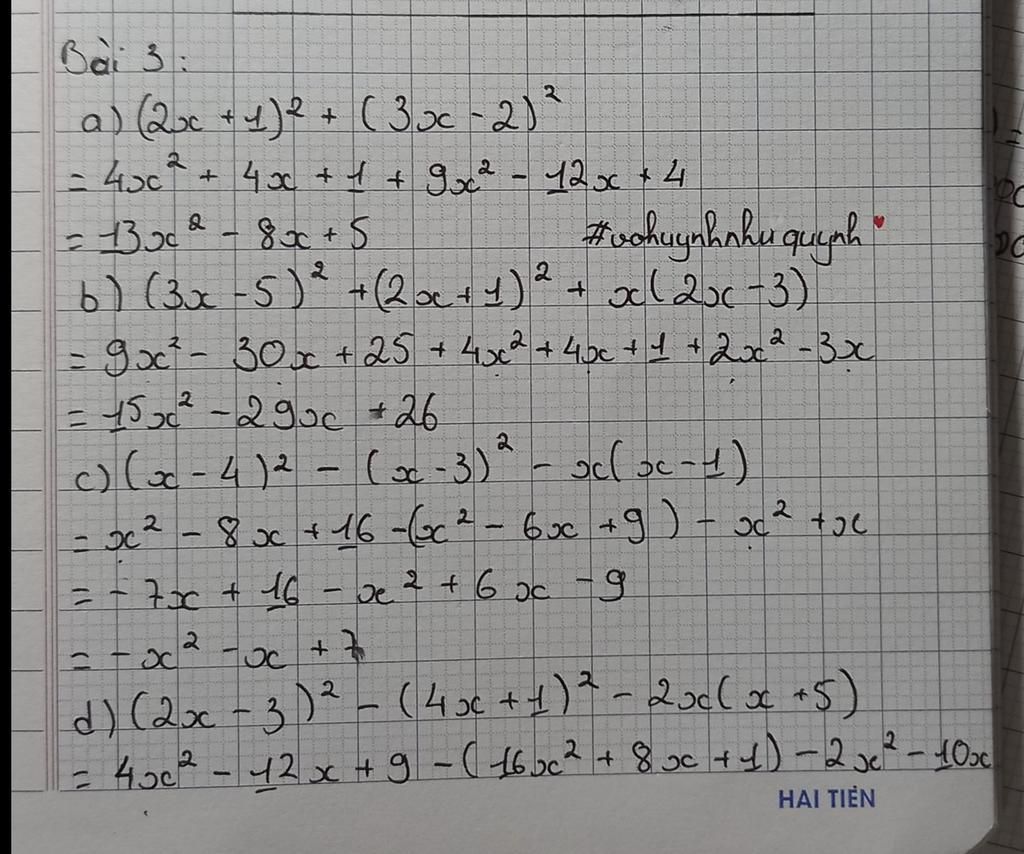 Bài 3:
a) (2x + 1)² + (3x - 2)²
= 4x² + 4x + 1 + 9x² - 12x + 4
= 13x² - 8x + 5 #vohuynhnhuquynh
b) (3x - 5)² + (2x + 1)² + x(2x - 3)
= 9x² - 30x + 25 + 4x² + 4x + 1 + 2x² - 3x
= 15x² - 29x + 26
c) (x - 4)² - (x - 3)² - x(x - 1)
= x² - 8x + 16 - (x² - 6x + 9) - x² + x
= - 7x + 16 - x² + 6x - 9
= - x² - x + 7
d) (2x - 3)² - (4x + 1)² - 2x(x + 5)
= 4x² - 12x + 9 - (16x² + 8x + 1) - 2x² - 10x
HẢI TIẾN